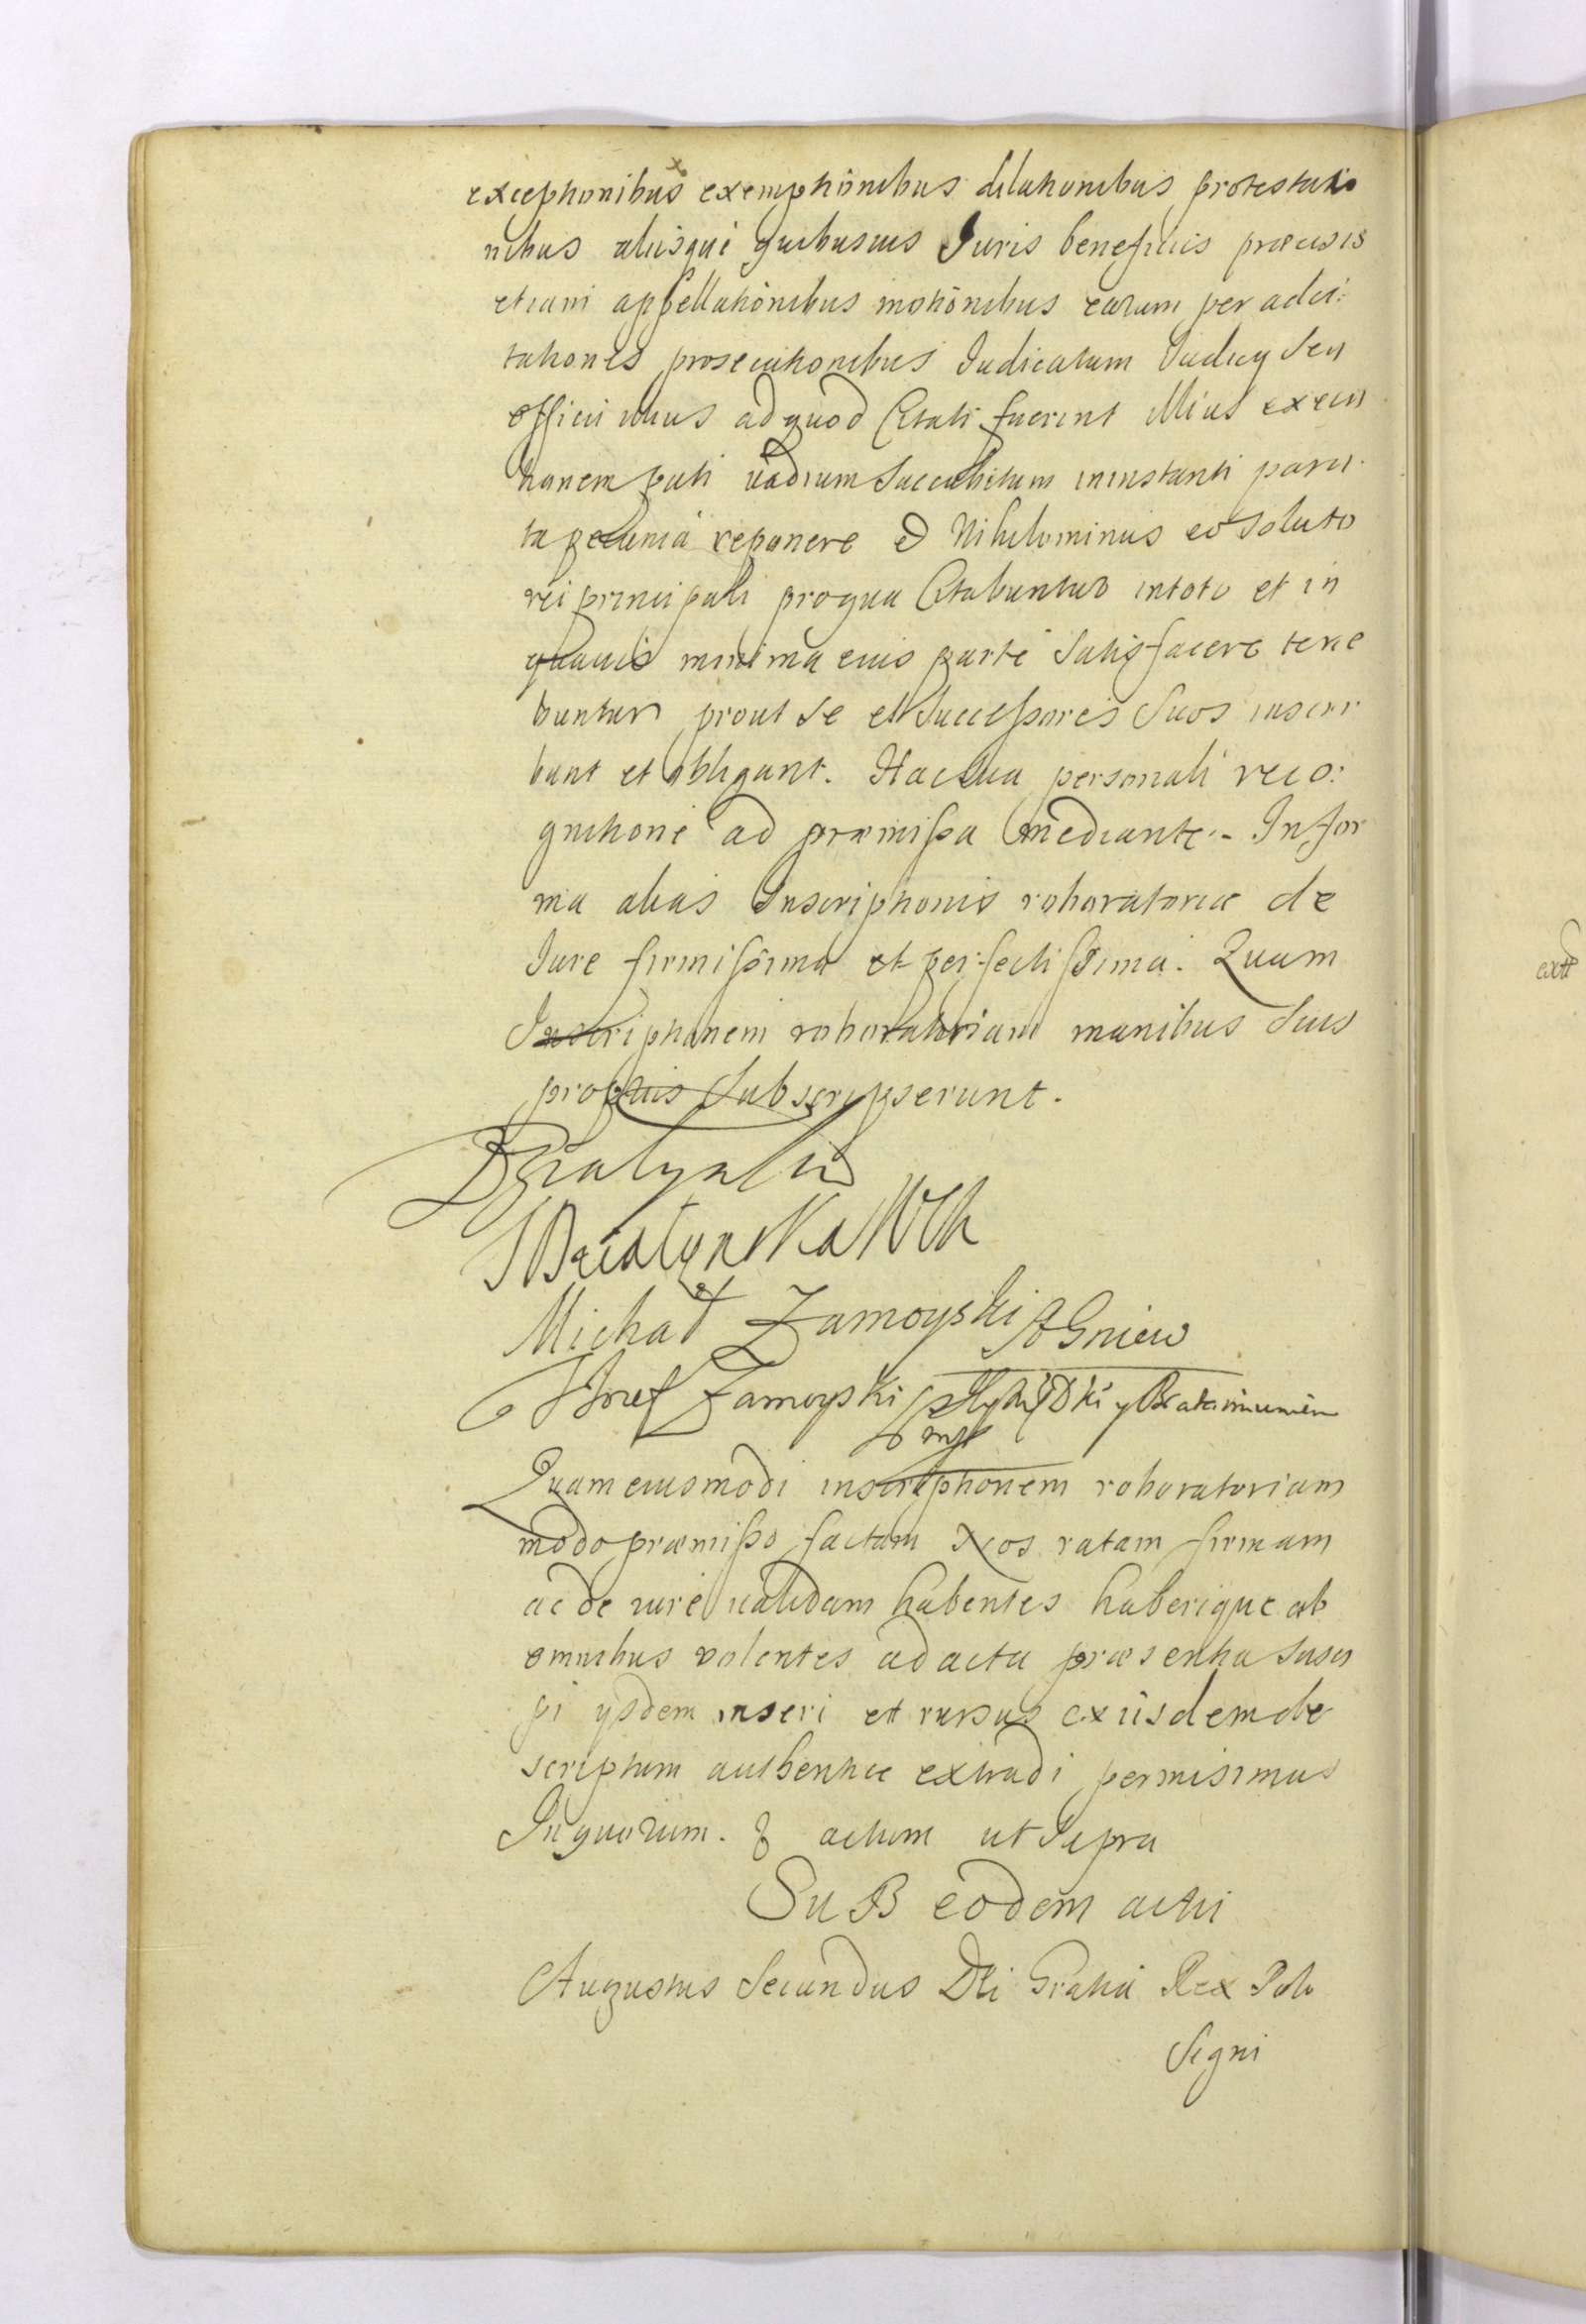 exceptionibus exemptionibus dilationibus protestatio
nibus aliisque quibusuis Iuris beneficiis præcisis
etiam appellationibus motionibus earum per adci:
tationes prosecutionibus Iudicatum Iudicy seu
officii uius ad quod Citati fuerint illius execu
tionem pati vadium succubitum ininstanti para
ta pecunia reponere et Nihilominus eo soluto
rei principali pro qua Citabuntur intoto et in
quauis minima eius parte Satisfacere tene
buntur prout se et Successores Suos inscri
bunt et obligant. Hac sua personali reco:
gnitione ad præmissa mediante.- In for
ma alias Inscriptionis roboratoriæ de
Iure firmissima et perfectissima. Quam
Inscriptionem roboratoriam manibus suis
propriis subscripserunt.
Działyński
Działynska WCh
Michał Zamoyski SGniew
Jozef Zamoyski
mp
Quam eiusmodi inscriptionem roboratoriam
modo præmisso factam Nos ratam firmam
ac de iure ualidam habentes haberique ab
omnibus volentes ad acta præsentia susci
pi ysdem inseri et rursus ex iisdem de
scriptum authentice extradi permisimus
In quorum. & actum ut Supra
SuB eodem actu
Augustus Secundus Dei Gratia Rex Polo
Segni
exttt